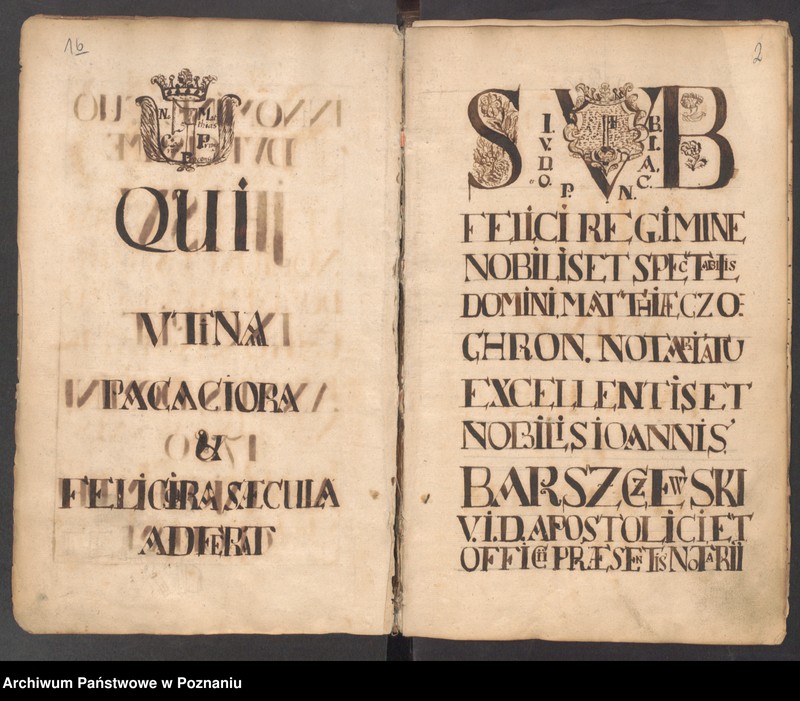 16
N. M.
P.
QUI
VTINAM
PACACIORA
&
FELICIORA SÆCULA
ADFERAT
2
SVB
I. V. D. O. P. N. B. L. A. C.
FELICI REGIMINE
NOBILIS ET SPECTABILIS
DOMINI, MATTHIÆ, CZO:
CHRON. NOTARIATU
EXCELLENTIS ET
NOBILIS IOANNIS
BARSZCZEWSKI
V. I. D. APOSTOLICI ET
OFFICII PRÆSENTIS NOTARII
Archiwum Państwowe w Poznaniu